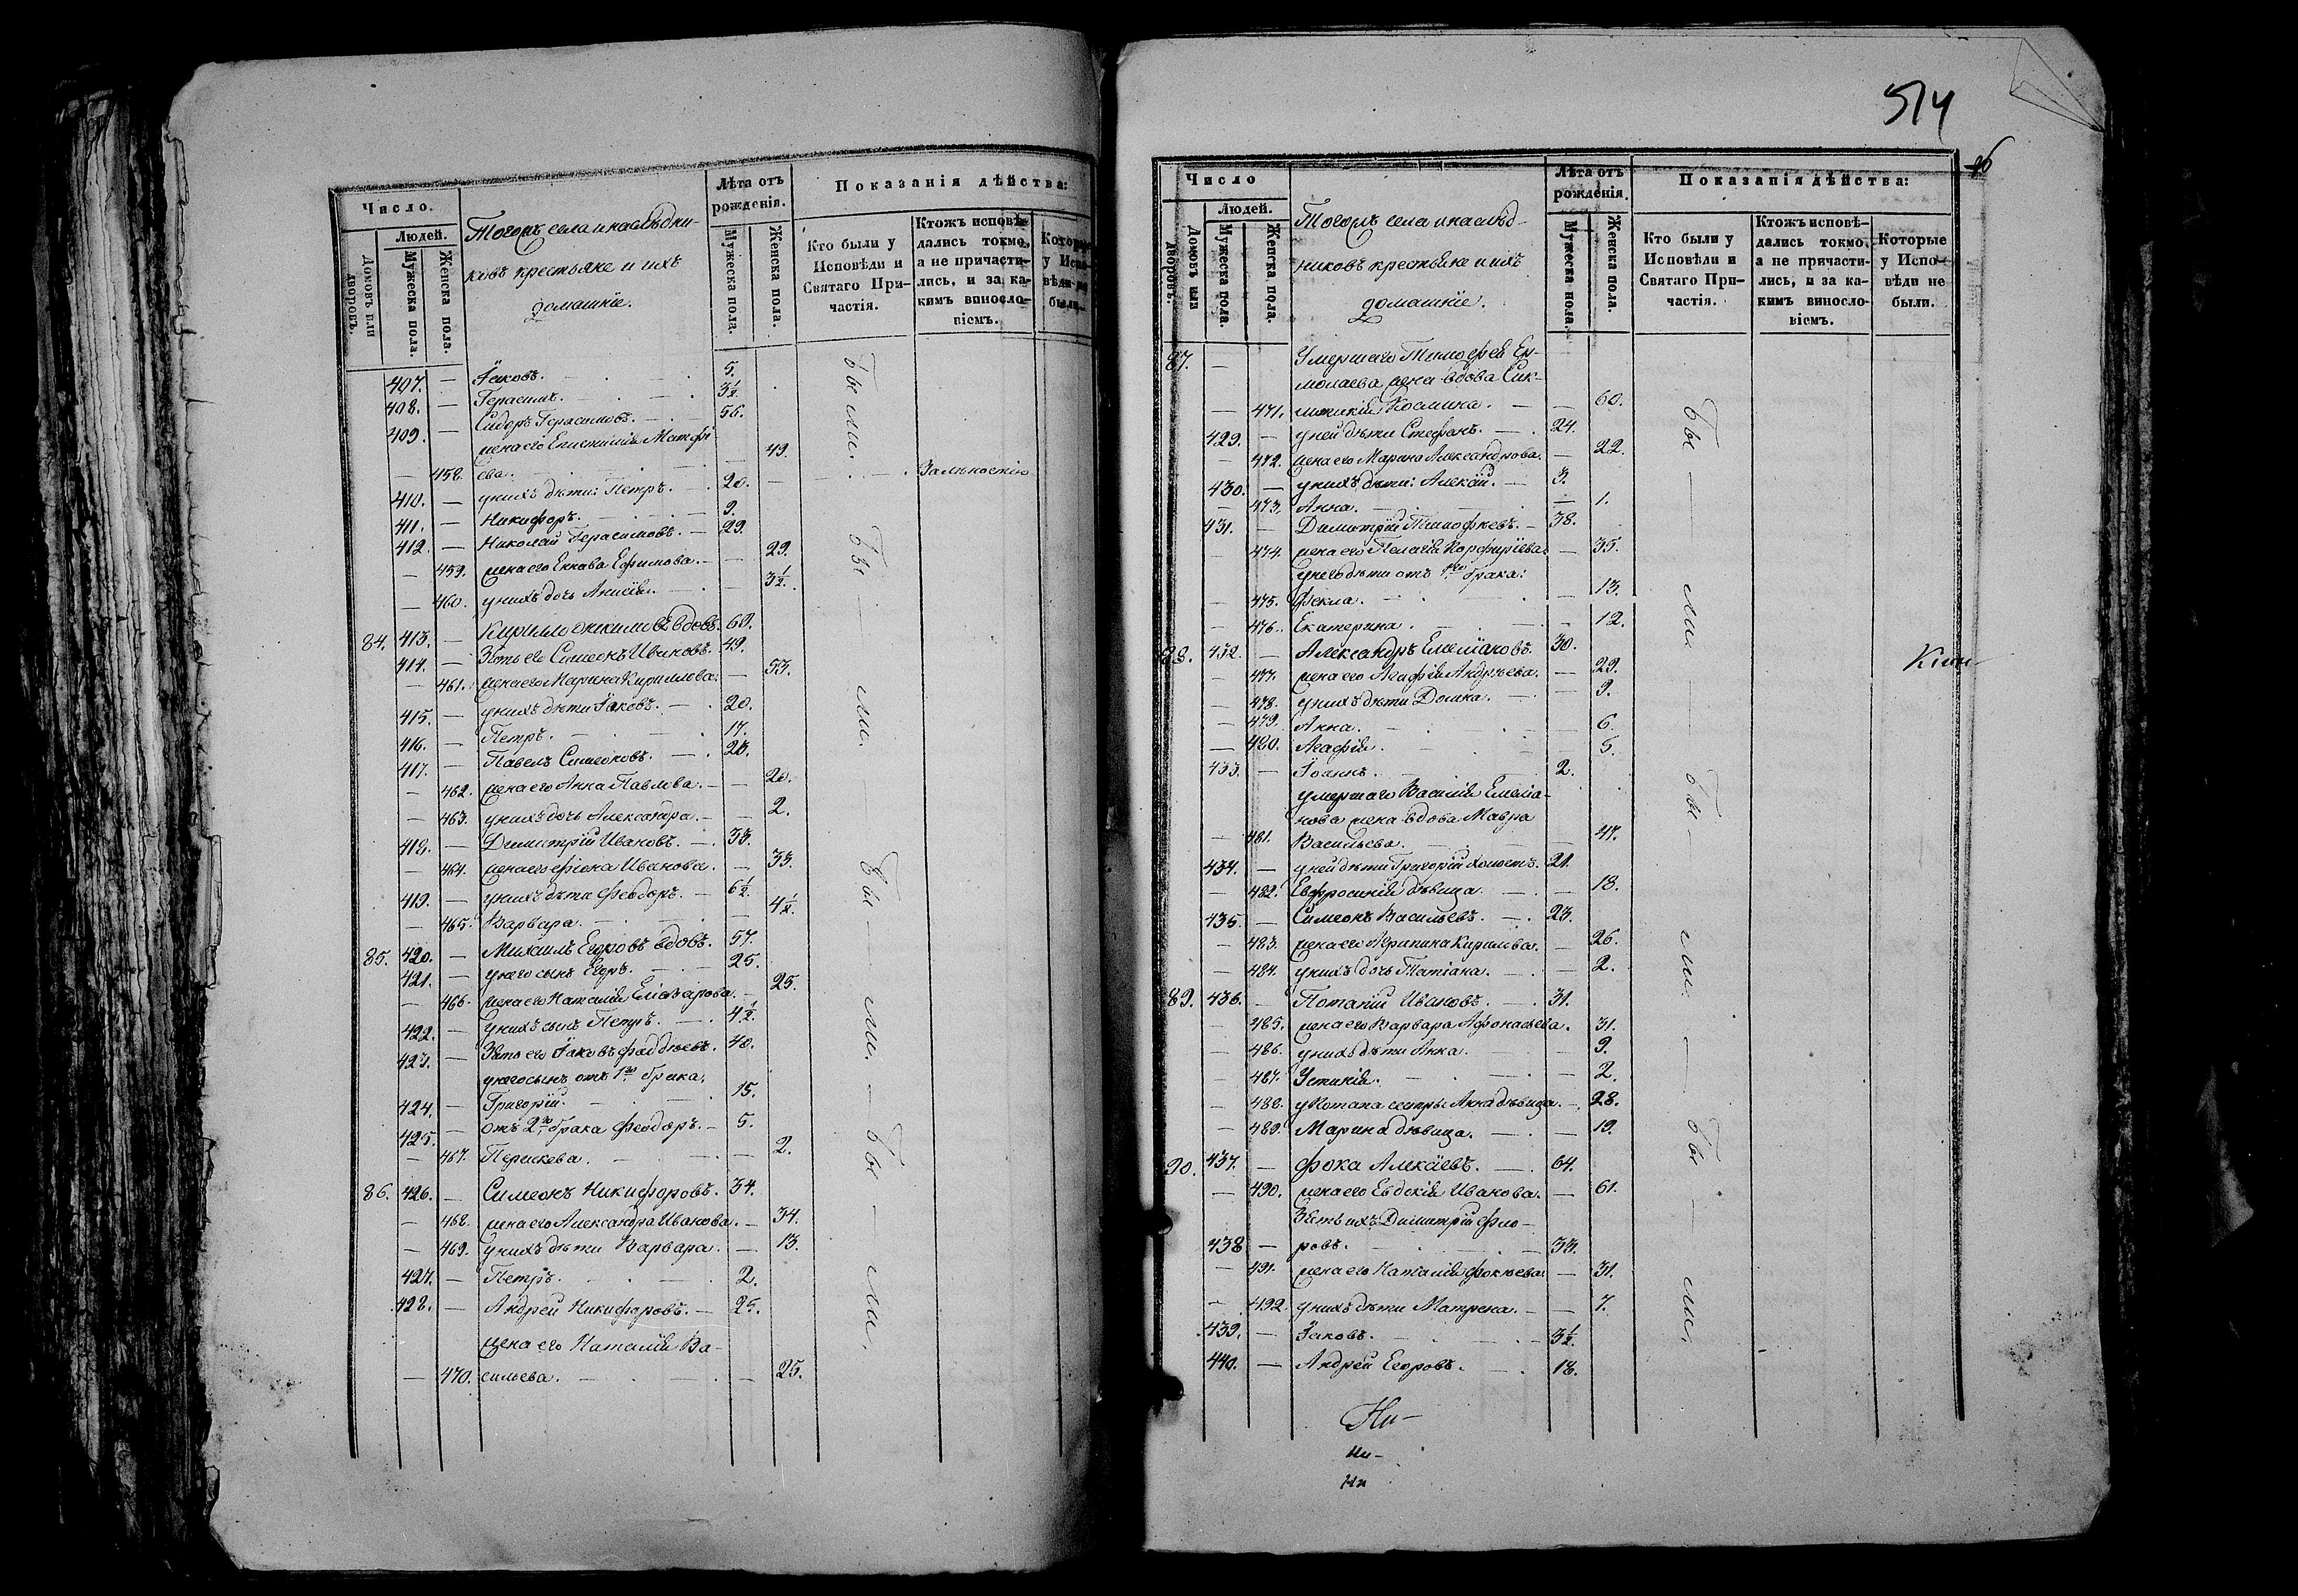 Число.
Людей.
Домовъ или дворовъ.
Мужеска пола.
Женска пола.
Тогожъ села и наслѣдни-
ковъ крестьяне и ихъ
домашніе.
Лѣта отъ рожденія.
Мужеска пола.
Женска пола.
Показанія дѣйства:
Кто были у Исповѣди и Святаго При-частія.
Ктожъ исповѣ-дались токмо, а не причасти-лись, и за ка-кимъ винosло-віемъ.
Которые у Испо-вѣди не были.
407. — Іаковъ. 5.
408. — Герасимъ. 3½.
409. — Сидоръ Герасимовъ. 56.
жена его Епистимія Матфѣ-
— 458. ева. — 49.
410. — у нихъ дѣти: Петръ. 20.
411. — Никифоръ. 9.
412. — Николай Герасимовъ. 29.
— 459. жена его Ефимова. — 29.
— 460. у нихъ дочь Анисія. — 3½.
84. 413. — Кирилло вдовъ. 69.
414. — Зять его Симеонъ Ивановъ. 49.
— 461. жена его Марина Кириллова. — 53.
415. — у нихъ дѣти Іаковъ. 20.
416. — Петръ. 17.
417. — Павелъ Симеоновъ. 23.
— 462. жена его Анна Павлова. — 20.
— 463. у нихъ дочь Александра. — 2.
418. — Димитрій Ивановъ. 33.
— 464. жена его Фіона Иванова. — 33.
419. — у нихъ дѣти Феодоръ. 6½.
— 465. Варвара. — 4½.
85. 420. — Михаилъ Егоровъ вдовъ. 57.
421. — у него сынъ Егоръ. 25.
— 466. жена его Наталія Еліазарова. — 25.
422. — у нихъ сынъ Петръ. 4½.
423. — Зять его Іаковъ Фаддѣевъ. 40.
у него сынъ отъ 1го брака.
424. — Григорій. 15.
425. — отъ 2го брака Феодоръ. 5.
— 467. — 2.
86. 426. — Симеонъ Никифоровъ. 34.
— 468. жена его Александра Иванова. — 34.
— 469. у нихъ дѣти Варвара. — 13.
427. — Петръ. 2.
428. — Андрей Никифоровъ. 25.
жена его Наталія Ва-
— 470. сильева. — 25.
Бы — ли.
514
Число
Людей.
Домовъ или дворовъ.
Мужеска пола.
Женска пола.
Тогожъ села и наслѣд-
никовъ крестьяне и ихъ
домашніе.
Лѣта отъ рожденія.
Мужеска пола.
Женска пола.
Показанія дѣйства:
Кто были у Исповѣди и Святаго При-частія.
Ктожъ исповѣ-дались токмо, а не причасти-лись, и за ка-кимъ винosло-віемъ.
Которые у Испо-вѣди не были.
87. — Умершаго Тимофея Ер-
молаева жена вдова Сик-
— 471. Космина. — 60.
429. — у ней дѣти Стефанъ. 24.
— 472. жена его Марина Александрова. — 22.
430. — у нихъ дѣти: Алексій. 3.
— 473. Анна. — 1.
431. — Димитрій Тимофеевъ. 38.
— 474. жена его Пелагія Порфиріева. — 35.
у него дѣти отъ 1го брака:
— 475. Фекла. — 13.
— 476. Екатерина. — 12.
88. 432. — Александръ Емеліановъ. 30.
— 477. жена его Агафія Андрѣева. — 29.
— 478. у нихъ дѣти Домна. — 9.
— 479. Анна. — 6.
— 480. Агафія. — 5.
433. — Іоаннъ. 2.
умершаго Василія Емеліа-
нова жена вдова Мавра
— 481. Васильева. 47.
434. — у ней дѣти Григорій холостъ. 21.
— 482. Евфросинія дѣвица. — 18.
435. — Симеонъ Васильевъ. 23.
— 483. жена его Агрипина Кирилова. — 26.
— 484. у нихъ дочь Татіана. — 2.
89. 436. — Потапій Ивановъ. 31.
— 485. жена его Варвара Афонасьева. 31.
— 486. у нихъ дѣти Анна. — 9.
— 487. Устинія. — 2.
— 488. у Потапа сестры Анна дѣвица. — 28.
— 489. Марина дѣвица. — 19.
90. 437. — Фока Алексіевъ. 64.
— 490. жена его Евдокія Иванова. — 61.
Зять ихъ Димитрій Фло-
438 — ровъ. 33.
— 491. жена его Наталія Фокѣева. — 31.
— 492. у нихъ дѣти Матрена. — 7.
439. — Іаковъ. 3½.
440. — Андрей Егоровъ. 18.
Бы — ли
Ни-
ни-
ни